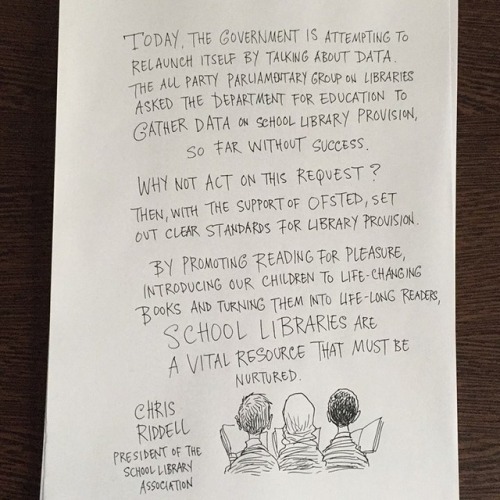 TODAY, THE GOVERNMENT IS ATTEMPTING TO
RELAUNCH ITSELF BY TALKING ABOUT DATA.
THE ALL PARTY PARLIAMENTARY GROUP ON LIBRARIES
ASKED THE DEPARTMENT FOR EDUCATION TO
GATHER DATA ON SCHOOL LIBRARY PROVISION,
SO FAR WITHOUT SUCCESS.
WHY NOT ACT ON THIS REQUEST?
THEN, WITH THE SUPPORT OF OFSTED, SET
OUT CLEAR STANDARDS FOR LIBRARY PROVISION.
BY PROMOTING READING FOR PLEASURE,
INTRODUCING OUR CHILDREN TO LIFE-CHANGING
BOOKS AND TURNING THEM INTO LIFE-LONG READERS,
SCHOOL LIBRARIES ARE
A VITAL RESOURCE THAT MUST BE
NURTURED.
CHRIS
RIDDELL
PRESIDENT OF THE
SCHOOL LIBRARY
ASSOCIATION